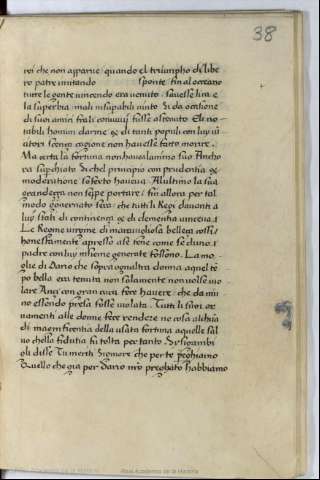 38
roi che non apparue quando el triumpho di libe
ro patre imitando sponte fin al oceano
tutte le gente uincendo era uenuto. sauesse lira e
la superbia mali insupabili uinto. Si da ocasione
di suoi amici fra li conuiuij fusse astenuto. El no
tabili homini darme et di tanti populi con luy ui
ctori senza cagione non hauesse fatto morire.
Ma certa la fortuna non haueua lanimo suo Ancho
ra supchiato Si chel principio con prudentia et
moderatione soferto haueua. Al ultimo la sua
grandezza non sape portare. fin allora per tal
modo gouernato sera. che tutti li Regi dauanti a
luy stati di continenza et di clementia uinceua.
Le Regine uirgine di marauigliosa bellezza cossi
honestamente apresso a se tene come se duno
padre con luy insieme generate fossono. La mo
glie di Dario che sopra ognaltra donna aquel te
po bella era tenuta non solamente non uolse uio
lare Anzi con gran cura fece hauere. che da niu
no essendo presa fusse uiolata. Tutti li suoi or
namenti alle donne fece rendere no cosa alchuna
di magnificentia della usata fortuna a quelle sal
uo chella fidutia fu tolta per tanto Sysigambi
gli disse Tu meriti Signore che per te preghiamo
Quello che gia per Dario nro pregato habbiamo
Real Academia de la Historia